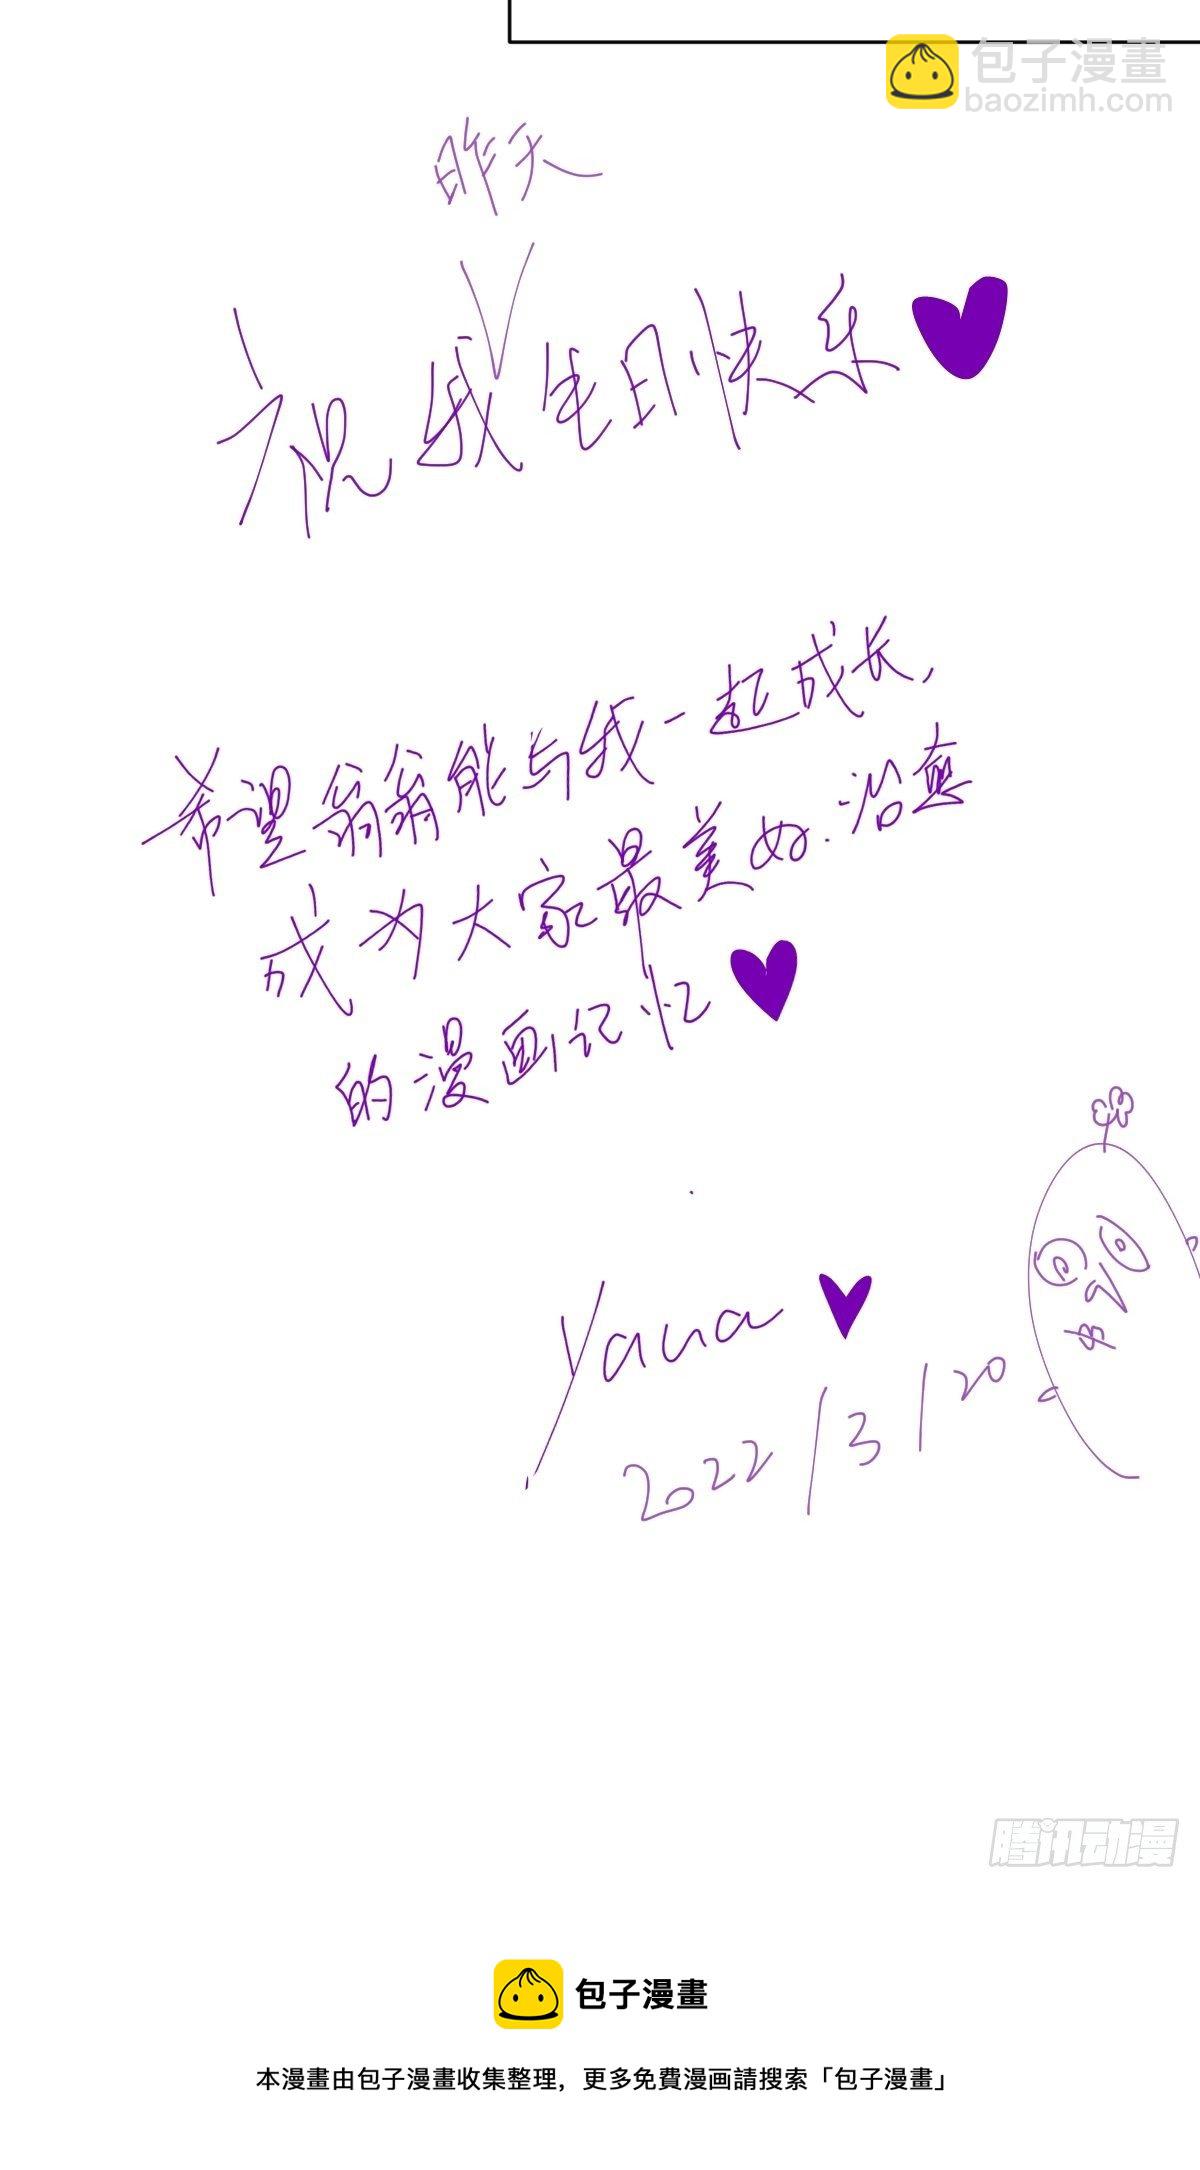 包子漫畫
baozimh.com
昨天
祝我生日快乐
希望翁翁能与我一起成长,
成为大家最美好.治愈
的漫画记忆
Yana
2022/3/20
腾讯动漫
包子漫畫
本漫畫由包子漫畫收集整理，更多免費漫画請搜索「包子漫畫」